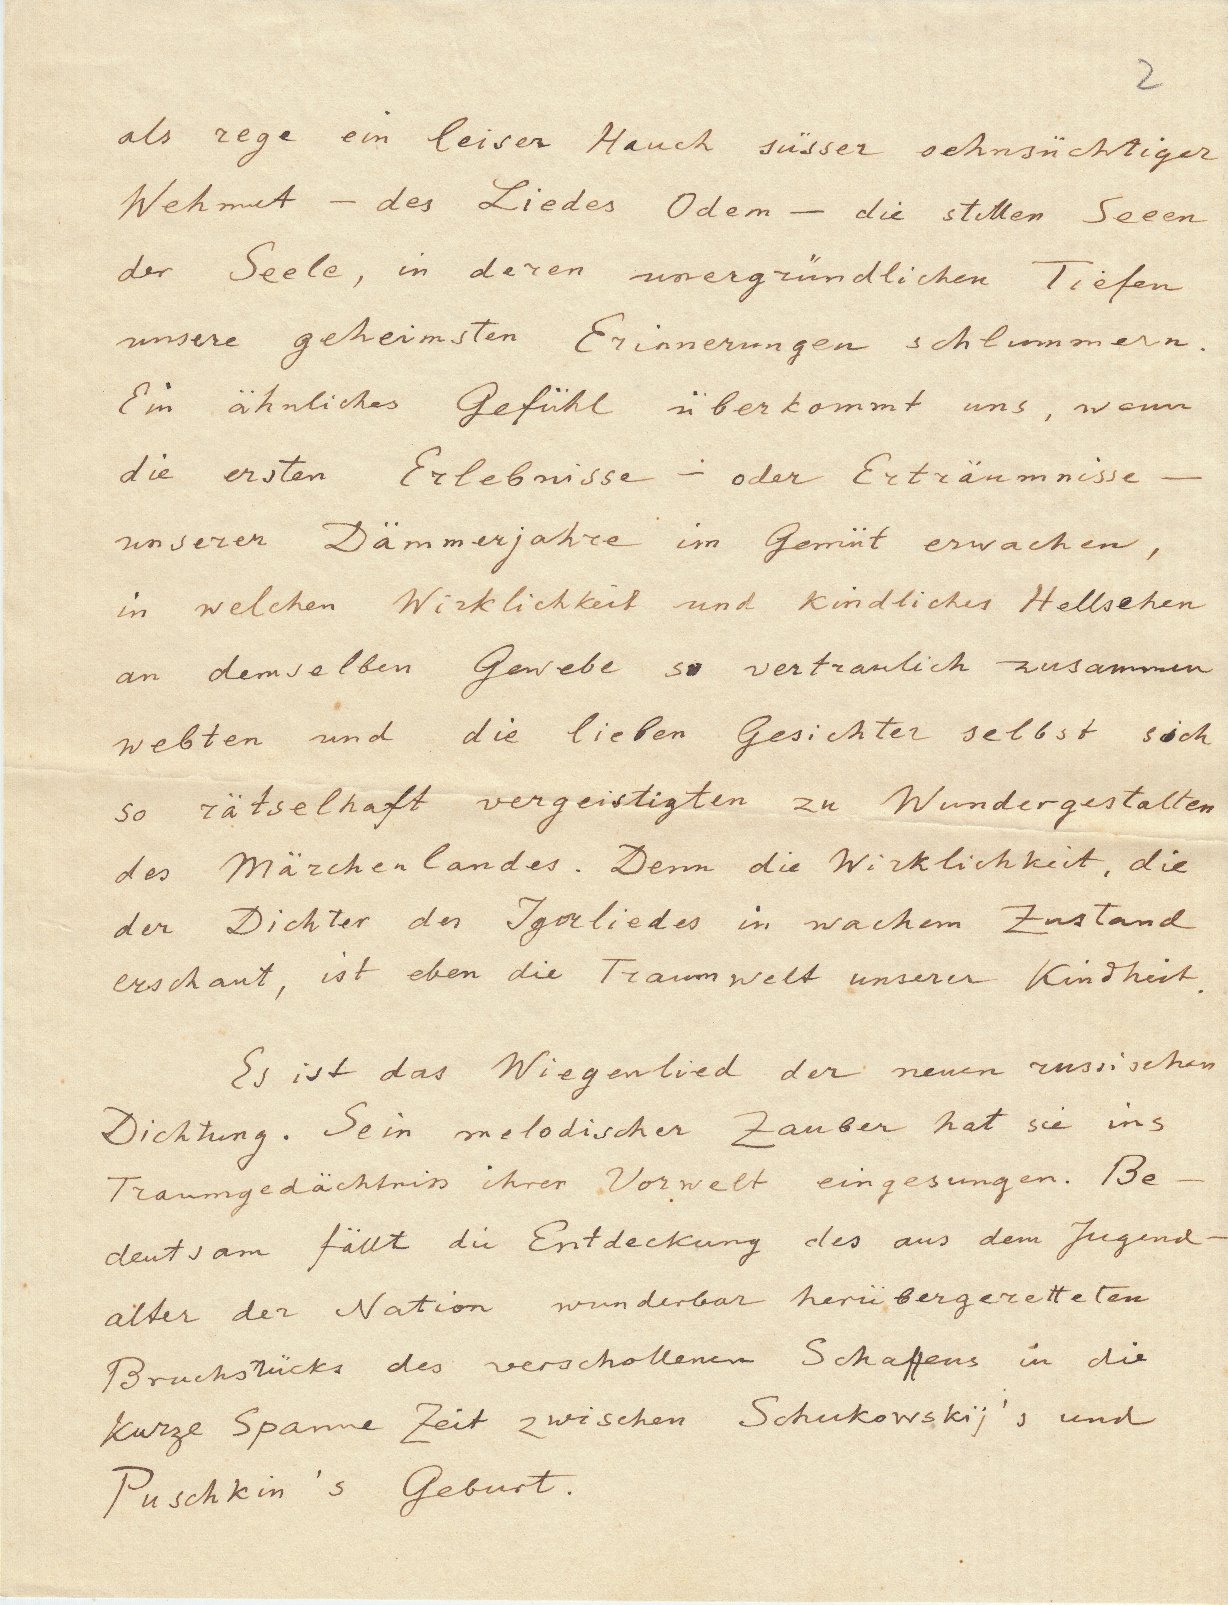 2
als rege ein leiser Hauch süsser sehnsüchtiger
Wehmut – des Liedes Odem – die stillen Seeen
der Seele, in deren unergründlichen Tiefen
unsere geheimsten Erinnerungen schlummern.
Ein ähnliches Gefühl überkommt uns, wenn
die ersten Erlebnisse – oder Erträumnisse –
unserer Dämmerjahre im Gemüt erwachen,
in welchen Wirklichkeit und kindliches Hellsehen
an demselben Gewebe so vertraulich zusammen
webten und die lieben Gesichter selbst sich
so rätselhaft vergeistigten zu Wundergestalten
des Märchenlandes. Denn die Wirklichkeit, die
der Dichter des Igorliedes in wachem Zustand
erschaut, ist eben die Traumwelt unserer Kindheit.
Es ist das Wiegenlied der neuen russischen
Dichtung. Sein melodischer Zauber hat sie ins
Traumgedächtniss ihrer Vorwelt eingesungen. Be-
deutsam fällt die Entdeckung des aus dem Jugend-
alter der Nation wunderbar herübergeretteten
Bruchstücks des verschollenen Schaffens in die
kurze Spanne Zeit zwischen Schukowskij's und
Puschkin's Geburt.